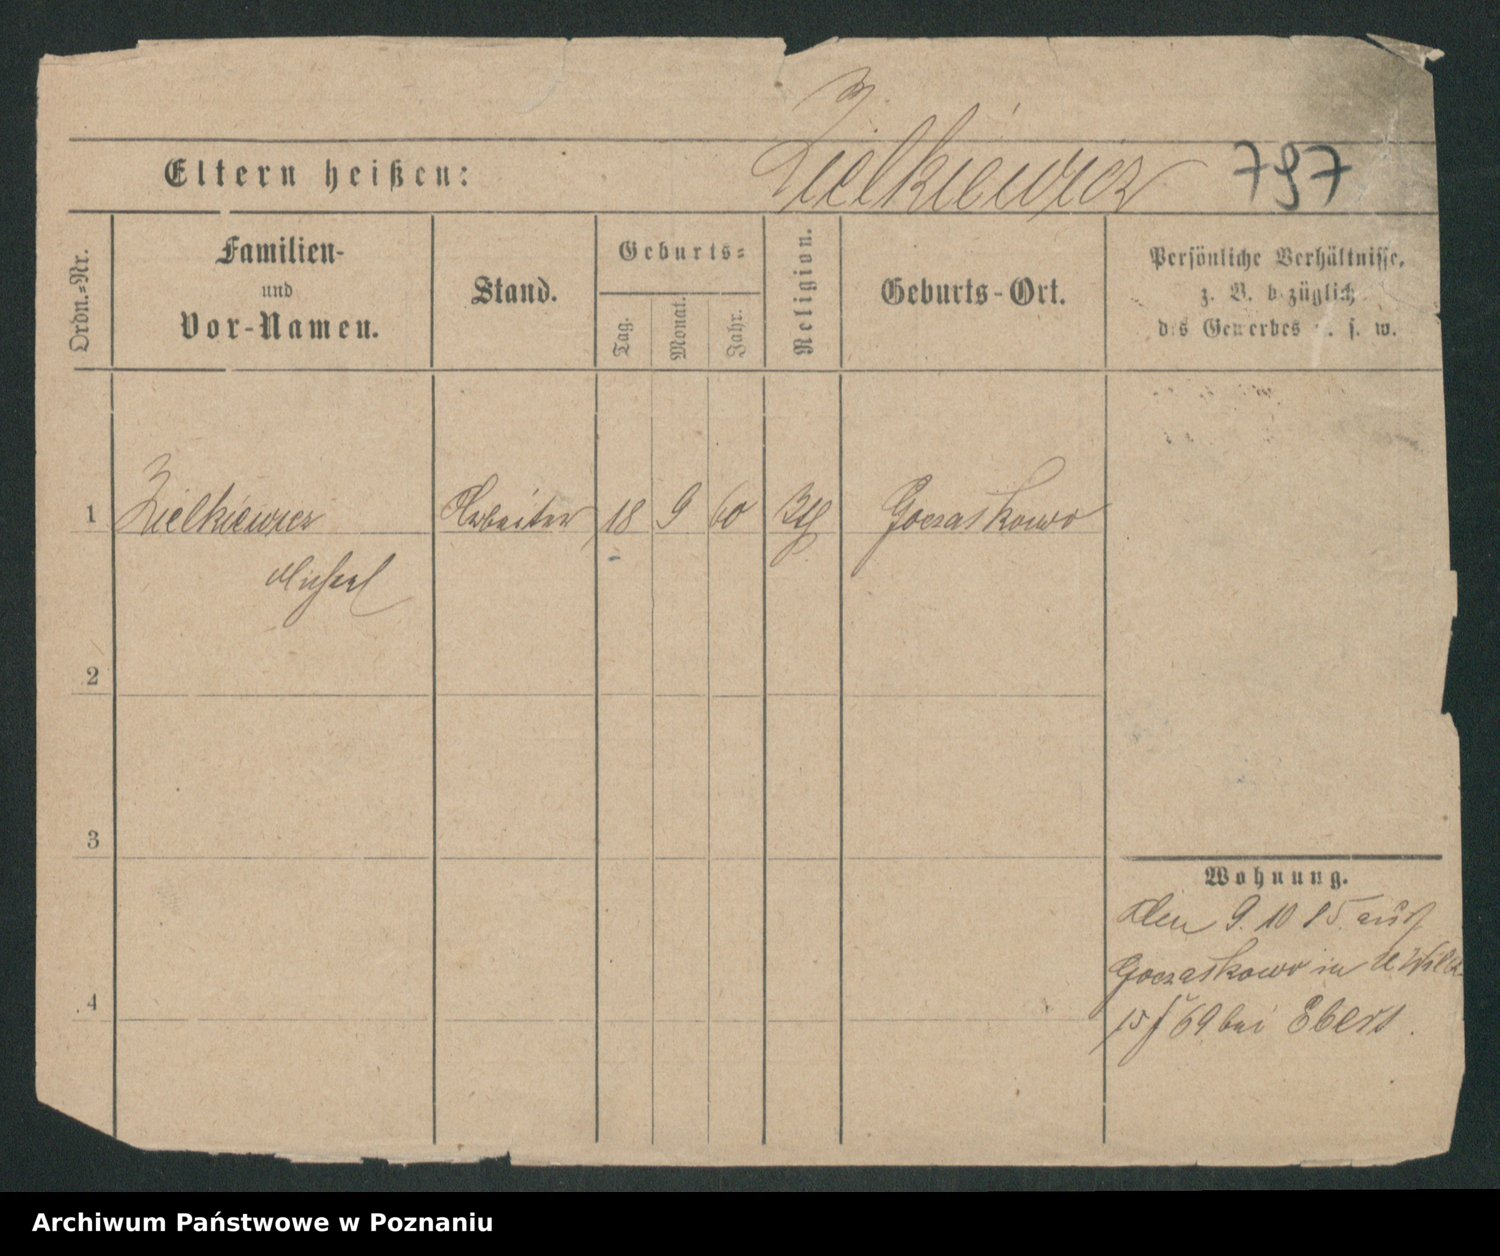 Zielkiewicz 797
Eltern heißen:
Ordn.-Nr.
Familien-
und
Vor-Namen.
Stand.
Geburts-
Tag.
Monat.
Jahr.
Religion.
Geburts-Ort.
Persönliche Verhältnisse,
z. B. bezüglich
des Gewerbes u. s. w.
1 Zielkiewicz Arbeiter 18 9 60 Goczaskowo
Michael
2
3
4
Wohnung.
Den 9. 10 85. aus
Goczaskowo in U Wilda
69 bei Ebers.
Archiwum Państwowe w Poznaniu